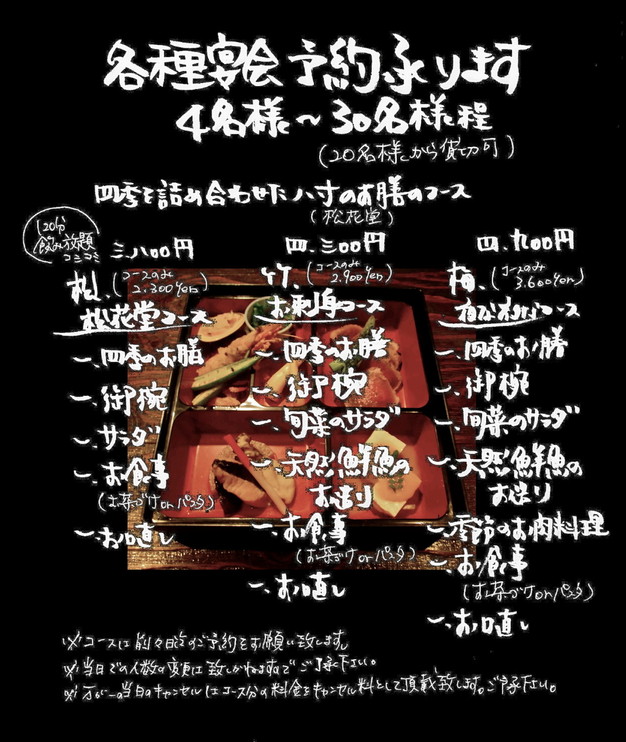 各種宴会予約承ります
4名様〜30名様程
(20名様から貸切可)
四季を詰め合わせた八寸のお膳のコース
(松花堂)
120分
飲み放題
コミコミ
三.八00円
松、(コースのみ
2.300yen)
松花堂コース
一、四季のお膳
一、御椀
一、サラダ
一、お食事
(お茶づけorパスタ)
一、お口直し
四.三00円
竹、(コースのみ
2.900yen)
お刺身コース
一、四季のお膳
一、御椀
一、旬菜のサラダ
一、天然鮮魚の
お造り
一、お食事
(お茶づけorパスタ)
一、お口直し
四.九00円
梅、(コースのみ
3.600yen)
コース
一、四季のお膳
一、御椀
一、旬菜のサラダ
一、天然鮮魚の
お造り
一、季節のお肉料理
一、お食事
(お茶づけorパスタ)
一、お口直し
※コースは前々日迄のご予約をお願い致します。
※当日での人数の変更は致しかねますでご了承下さい。
※万が一の当日のキャンセルはコース分の料金をキャンセル料として頂戴致します。ご了承下さい。